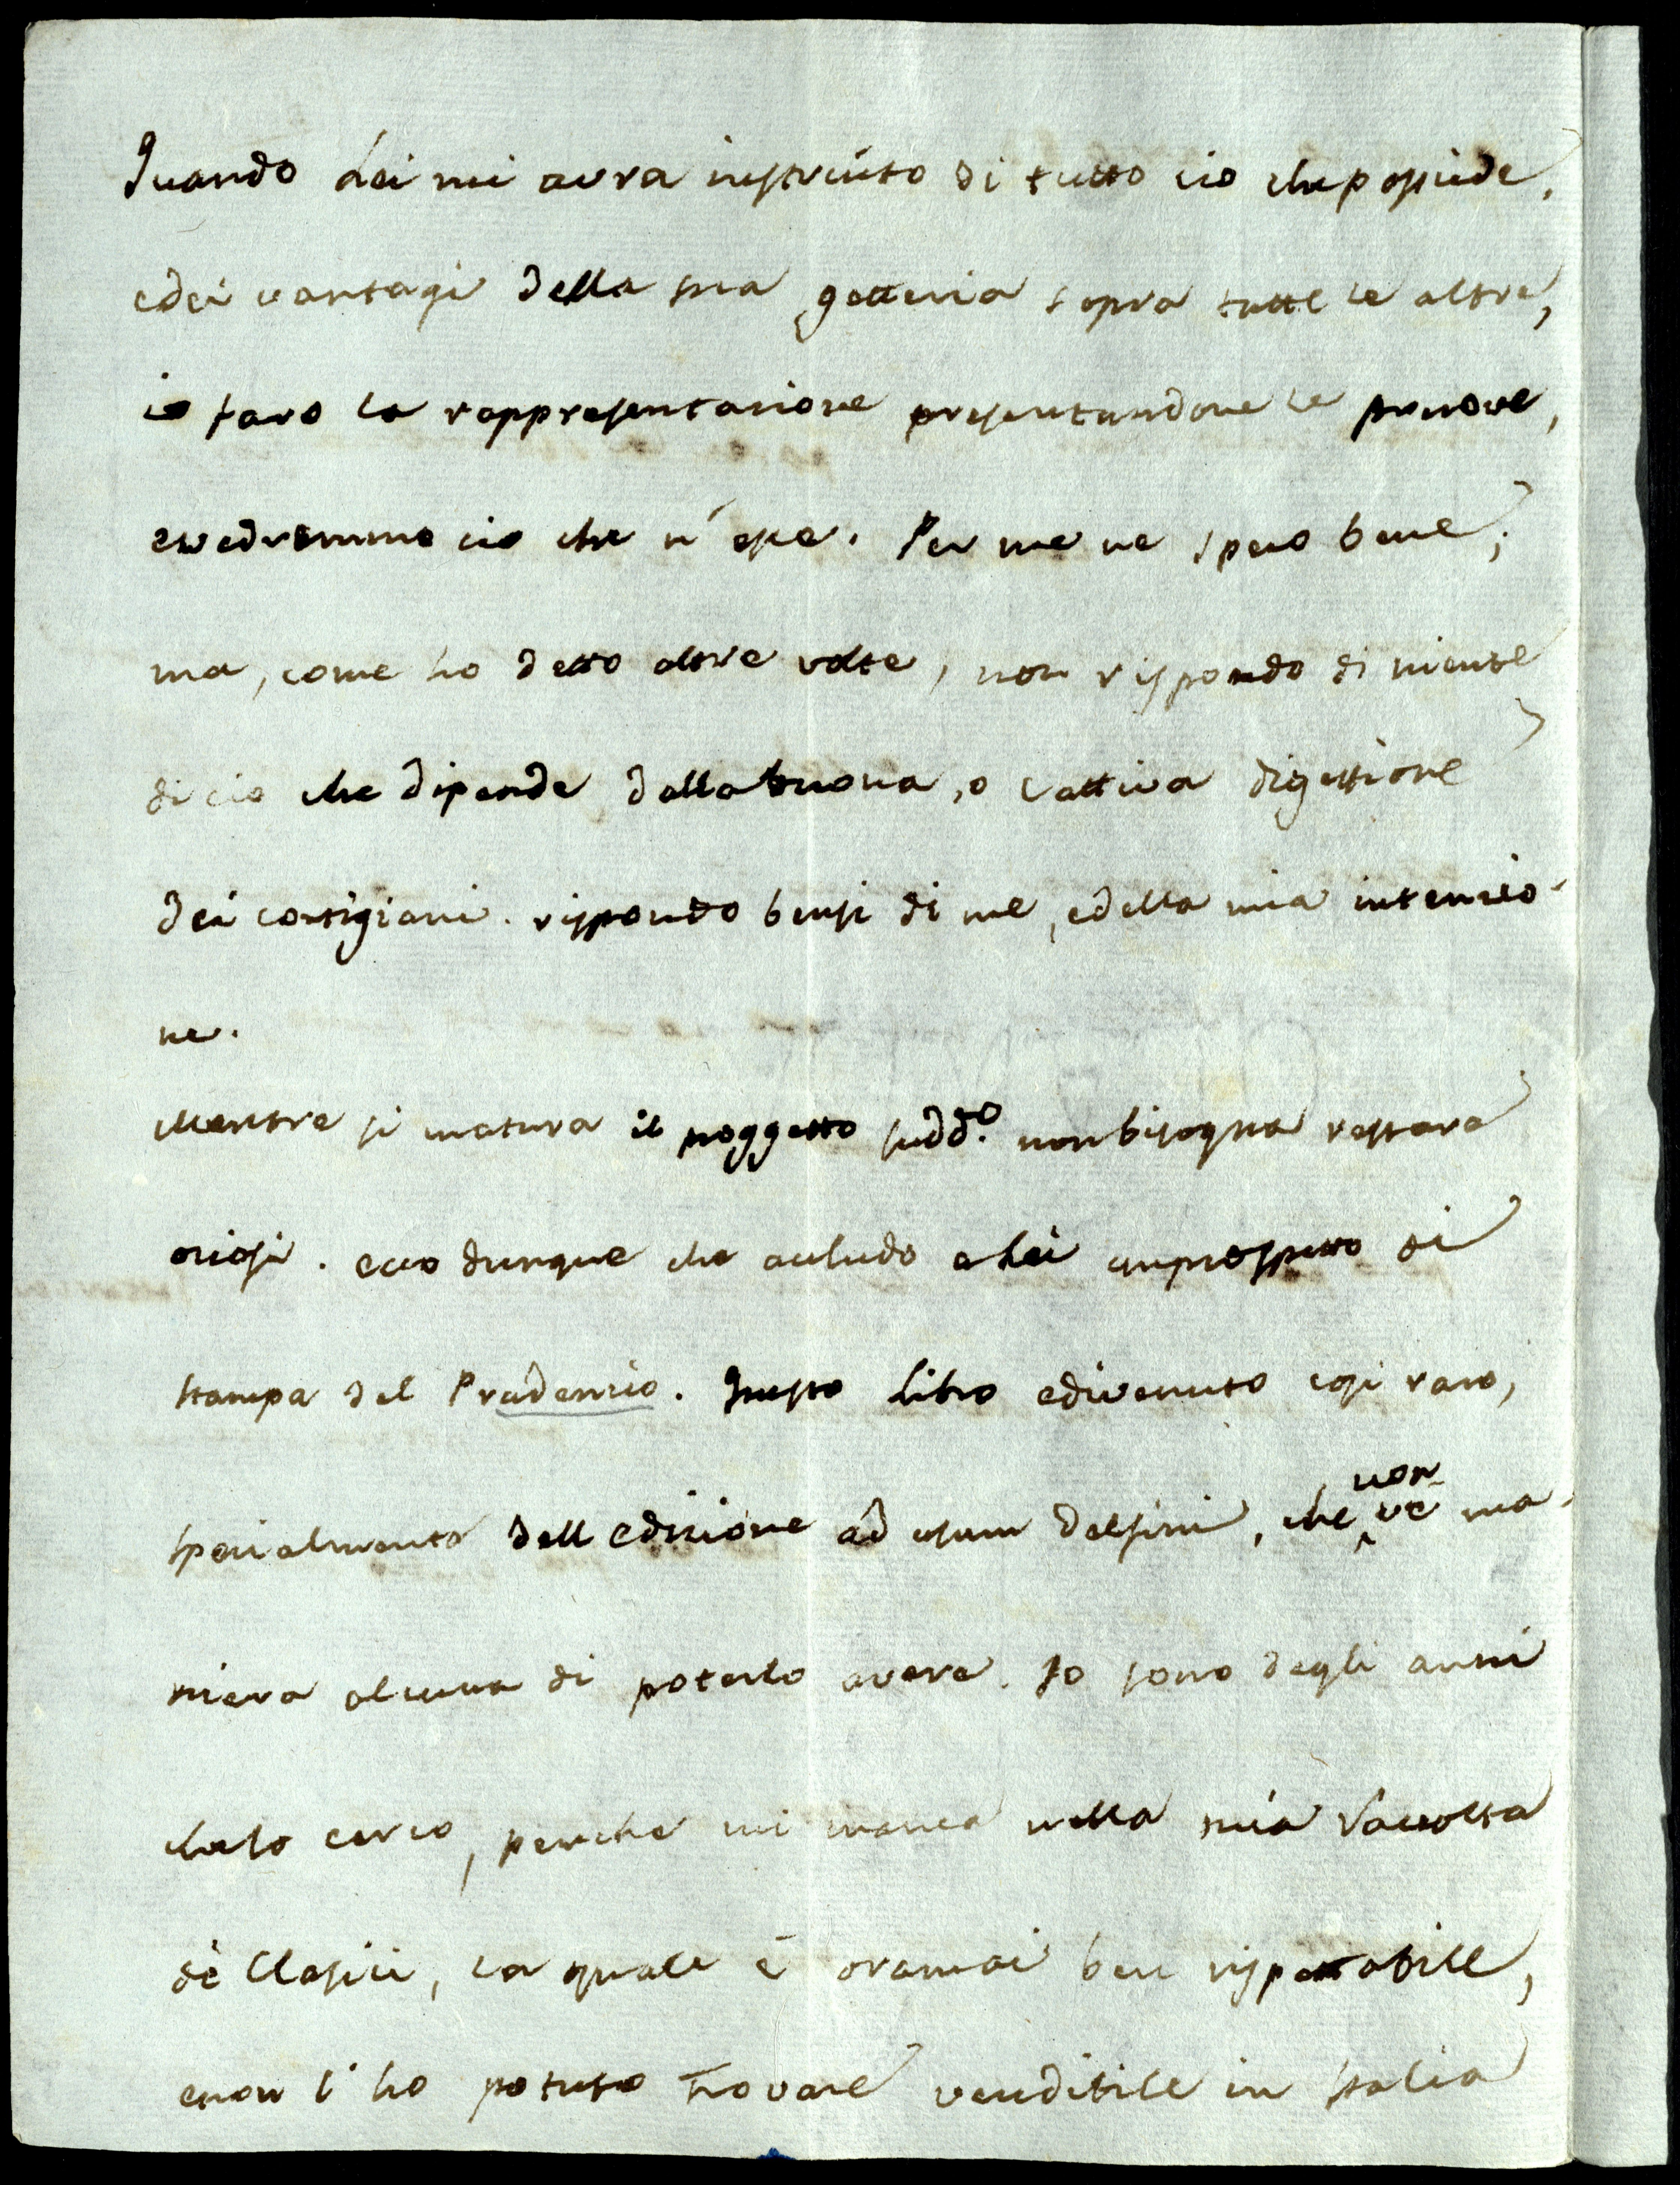 Quando Lei mi avra instruito di tutto cio che possiede,
e dei vantagi della sua getteria sopra tutte le altre,
io faro la rappresentazione presentandone le pruove,
e vedremmo cio che n'esce. Per me ne spero bene;
ma, come ho detto altre volte, non rispondo di niente
di cio che dipende dalla buona, o cattiva digestione
dei cortigiani. rispondo bensi di me, e della mia intenzio-
ne.
Mentre si matura il proggetto sudd.o non bisogna restare
oziosi. ecco dunque che acchiudo a Lei un prospetto di
stampa del Prudenzio. Questo Libro e divenuto cosi raro,
spezialmente dell edizione ad usum Delfini, che non ve ma-
niera alcuna di poterlo avere. Io sono degli anni
che lo cerco, perche mi manca nella mia Raccolta
de Classici, la quale è oramai ben rispettabile,
e non l'ho potuto trovare vendibile in Italia